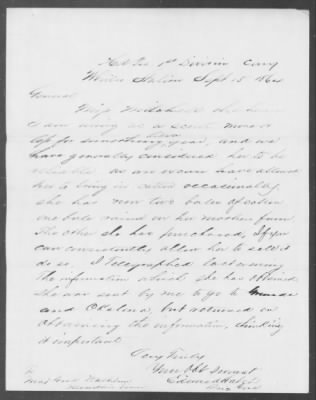 Hd Qrs 1st Division Cavy
White Station Sept 15 1864
General
Miss Mitchell who
I am using as a scout more or
less for some time year, and we
have generally considered her to be
reliable as an excuse have allowed
her to bring in cotton occasionally
she has now two bales of cotton
one bale raised on her mothers farm
the other she has purchased, If you
can consistently allow her to sell it
do so. I telegraphed last evening
the information which she has obtained.
She was sent by me to go to
and Okolona, but returned on
obtaining the information, thinking
it important.
Very Truly
Your Obt Servant
Edward Hatch
Brig Genl
To
Maj Genl Washburn
Tenn